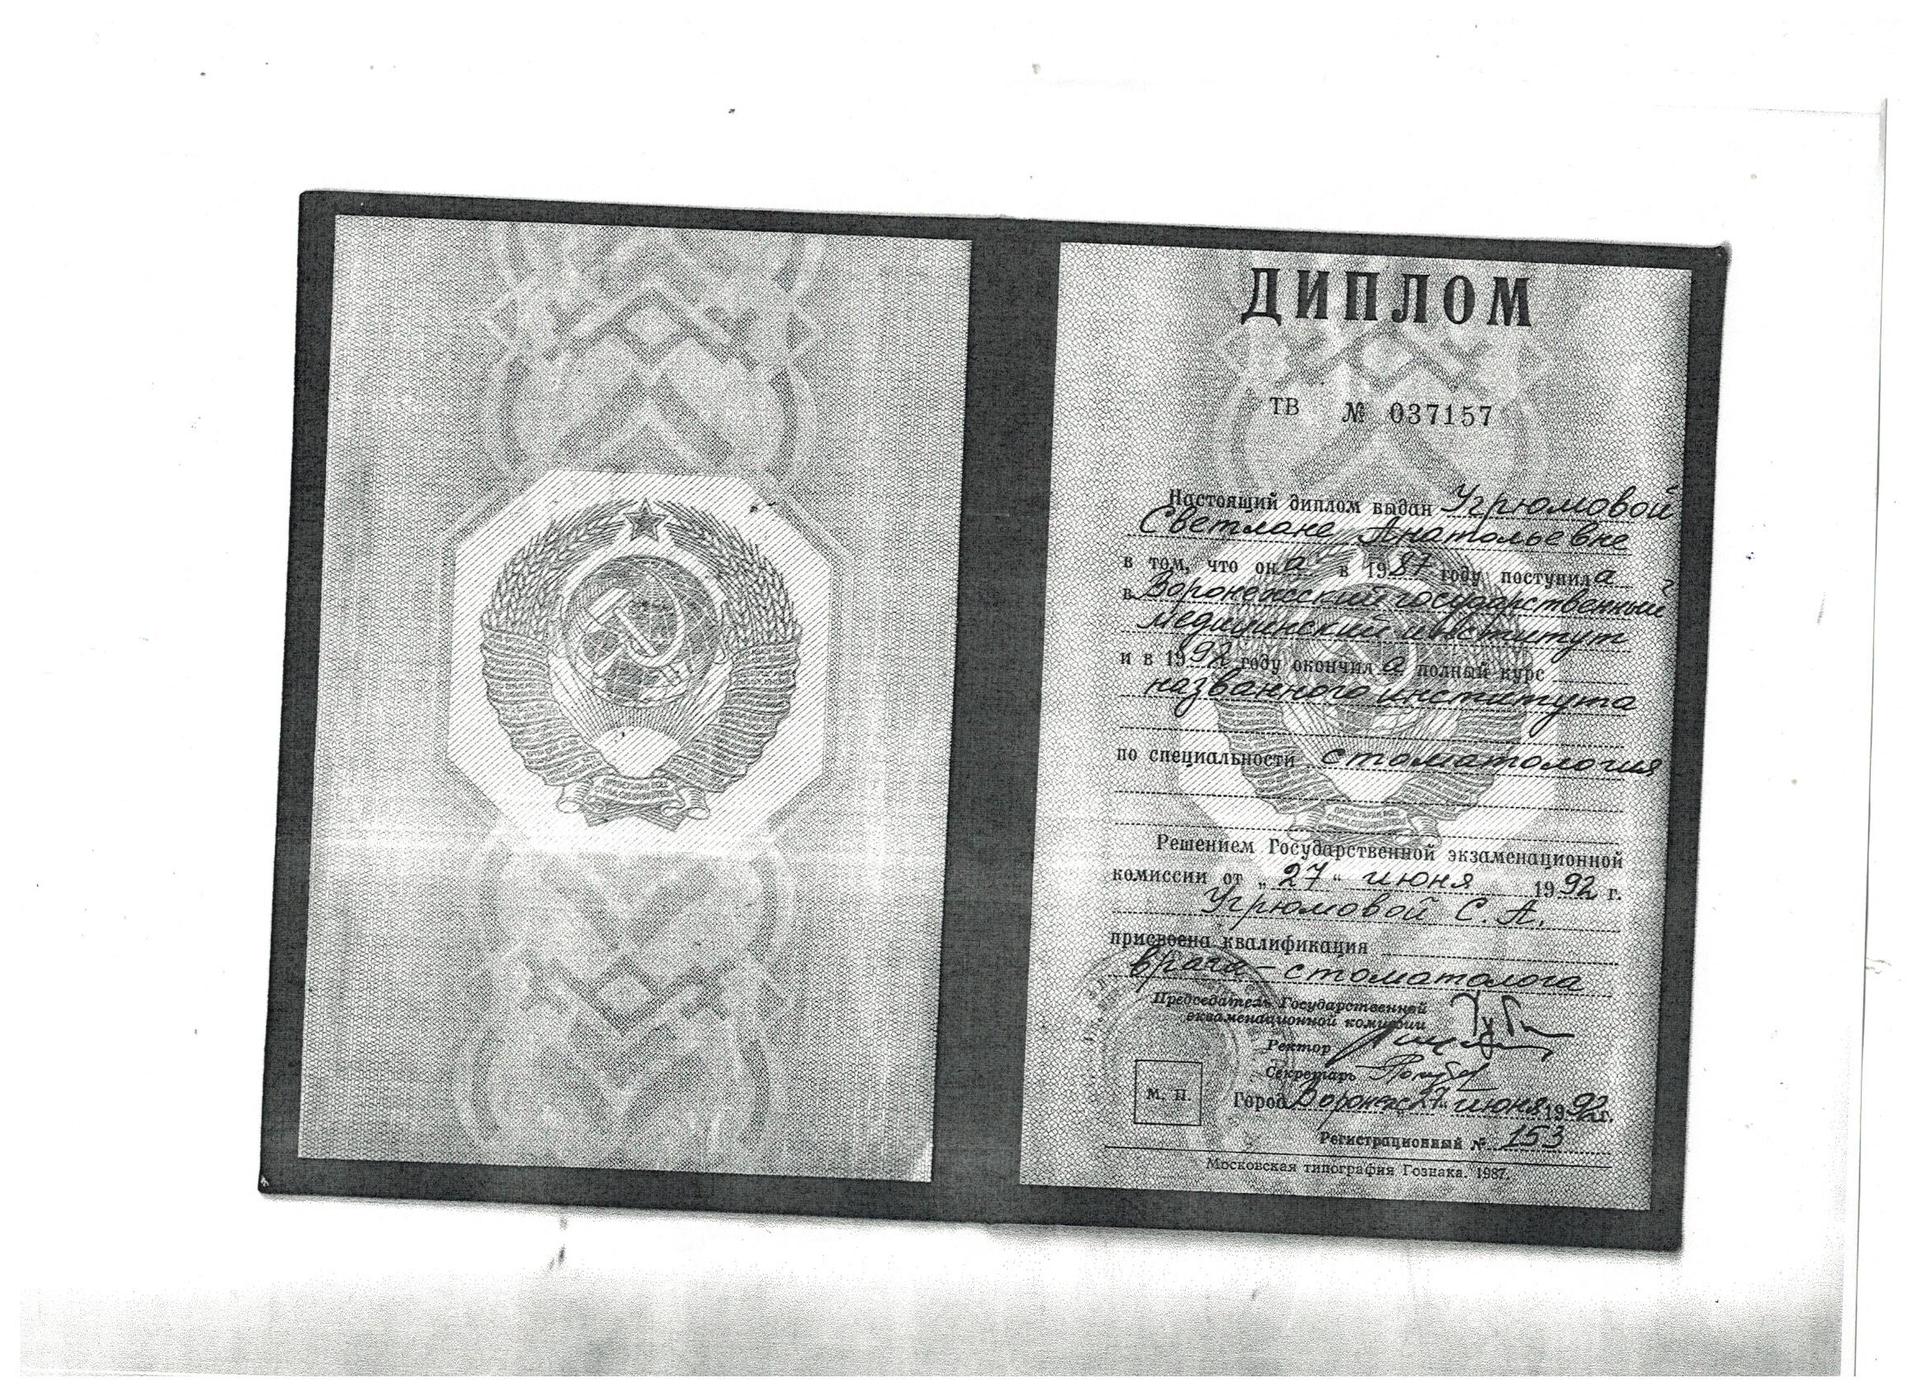 ДИПЛОМ
ТВ № 037157
Настоящий диплом выдан Угрюмовой
Светлане Анатольевне
в том, что она в 1987 году поступила
в Воронежский государственный
медицинский институт
и в 1992 году окончила полный курс
названного института
по специальности стоматология
Решением Государственной экзаменационной
комиссии от „27“ июня 1992 г.
Угрюмовой С. А.
присвоена квалификация
врача-стоматолога
Председатель Государственной
экзаменационной комиссии
Ректор
Секретарь
М. П.
Город Воронеж 27 июня 1992 г.
Регистрационный № 153
Московская типография Гознака. 1987.